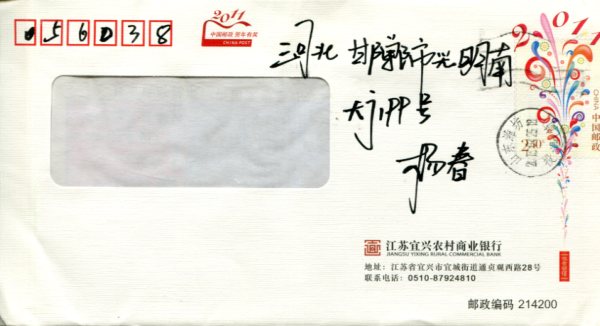 056038
2011
中国邮政 贺年有奖
CHINA POST
2011
河北 邯郸市光明南
大街199号
杨春
CHINA 中国邮政
江苏宜兴农村商业银行
JIANGSU YIXING RURAL COMMERCIAL BANK
地址：江苏省宜兴市宜城街道通贞观西路28号
联系电话：0510-87924810
邮政编码 214200